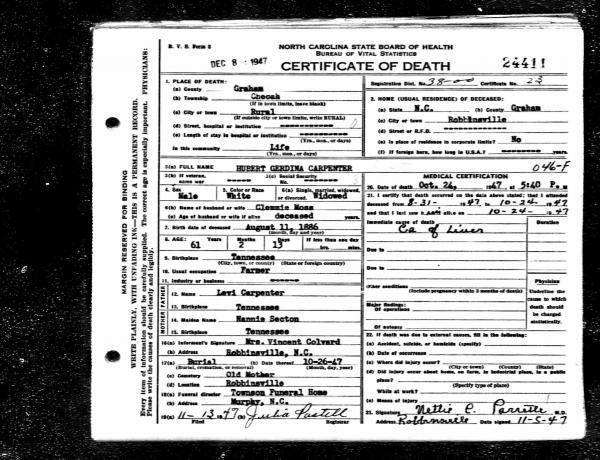 B. V. S. Form 8
DEC 8 · 1947
NORTH CAROLINA STATE BOARD OF HEALTH
BUREAU OF VITAL STATISTICS
CERTIFICATE OF DEATH
24411
MARGIN RESERVED FOR BINDING
WRITE PLAINLY, WITH UNFADING INK—THIS IS A PERMANENT RECORD.
Every item of information should be carefully supplied. The correct age is especially important. PHYSICIANS:
Please write the causes of death clearly and legibly.
1. PLACE OF DEATH:
(a) County Graham
(b) Township Cheoah
(If in town limits, leave blank)
(c) City or town Rural
(If outside city or town limits, write RURAL)
(d) Street, hospital or institution
(e) Length of stay in hospital or institution
(Yrs., mos., or days)
In this community Life
(Yrs., mos., or days)
Registration Dist. No. 38-00 Certificate No. 23
2. HOME (USUAL RESIDENCE) OF DECEASED:
(a) State N.C. (b) County Graham
(c) City or town Robbinsville
(d) Street or R.F.D.
(e) Is place of residence in corporate limits? No
(f) If foreign born, how long in U.S.A.? years.
046-F
3(a) FULL NAME HUBERT GERDINA CARPENTER
3(b) If veteran, name war
3(c) Social Security No.
4. Sex Male
5. Color or Race White
6(a) Single, married, widowed, or divorced Widowed
6(b) Name of husband or wife Clemmie Moss
(c) Age of husband or wife if alive deceased years.
7. Birth date of deceased August 11, 1886
(month, day and year)
8. AGE: 61 Years 2 Months 13 Days If less than one day hrs. min.
9. Birthplace Tennessee
(City, town, or county) (State or foreign country)
10. Usual occupation Farmer
11. Industry or business
FATHER
12. Name Levi Carpenter
13. Birthplace Tennessee
MOTHER
14. Maiden Name Nannie Secton
15. Birthplace Tennessee
16(a) Informant's Signature Mrs. Vincent Colvard
(b) Address Robbinsville, N.C.
17(a) Burial (b) Date thereof 10-26-47
(Burial, cremation, or removal) (Month, day, year)
(c) Cemetery Old Mother
(d) Location Robbinsville
18(a) Funeral director Townson Funeral Home
(b) Address Murphy, N.C.
19(a) 11-13 1947 (b) Julia
Filed Registrar
MEDICAL CERTIFICATION
20. Date of death Oct. 24, 1947 at 5:40 P. m
21. I certify that death occurred on the date above stated; that I attended
deceased from 8-31- 1947 to 10-24- 1947
and that I last saw alive on 10-24- 1947
Immediate cause of death Duration
Ca of Liver
Due to
Due to
Other conditions
(Include pregnancy within 3 months of death)
Major findings:
Of operations
Of autopsy
Physician
Underline the cause to which death should be charged statistically.
22. If death was due to external causes, fill in the following:
(a) Accident, suicide, or homicide (specify)
(b) Date of occurrence
(c) Where did injury occur?
(City or town) (County) (State)
(d) Did injury occur about home, on farm, in industrial place, in a public place?
(Specify type of place)
While at work?
(e) Means of injury
23. Signature Nettie C. Parrette M.D.
Address Robbinsville Date signed 11-5-47